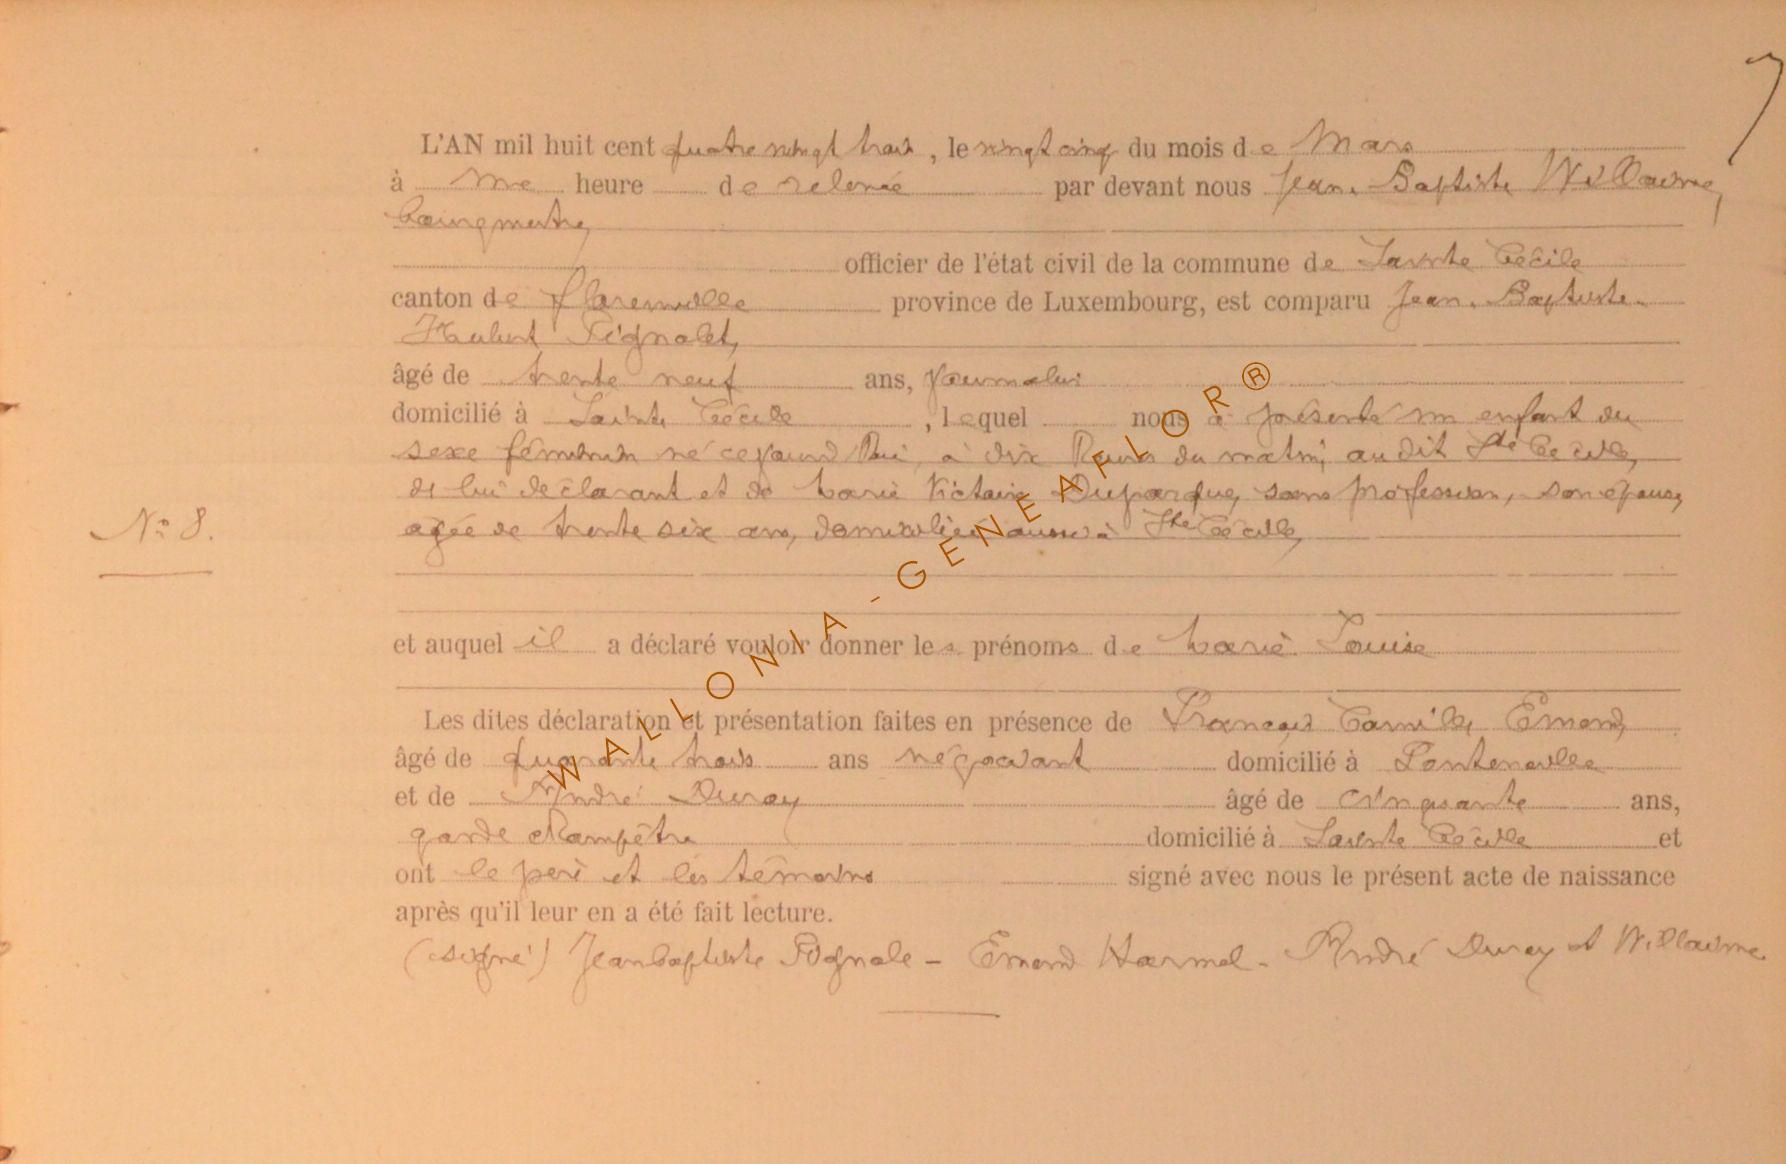 7
L'AN mil huit cent quatre vingt trois, le vingt cinq du mois de Mars
à une heure de relevée par devant nous Jean-Baptiste Willaime,
bourgmestre,
officier de l'état civil de la commune de Sainte Cécile
canton de Florenville province de Luxembourg, est comparu Jean-Baptiste-
Hubert Pignolet,
âgé de trente neuf ans, journalier
domicilié à Sainte Cécile, lequel nous a présenté un enfant du
sexe féminin né cejourd'hui, à dix heures du matin, au dit Ste Cécile,
de lui déclarant et de Marie Victoire Duparque, sans profession, son épouse,
âgée de trente six ans, domiciliée aussi à Ste Cécile,
N° 8.
et auquel il a déclaré vouloir donner les prénoms de Marie Louise
Les dites déclaration et présentation faites en présence de François Camille Emond,
âgé de quarante trois ans négociant domicilié à Fontenoille
et de André Duroy âgé de cinquante ans,
garde champêtre domicilié à Sainte Cécile et
ont le père et les témoins signé avec nous le présent acte de naissance
après qu'il leur en a été fait lecture.
(signé) Jeanbaptiste Pignole - Emond Harmel - André Duroy et Willaime
WALLONIA-GENEAFLOR®